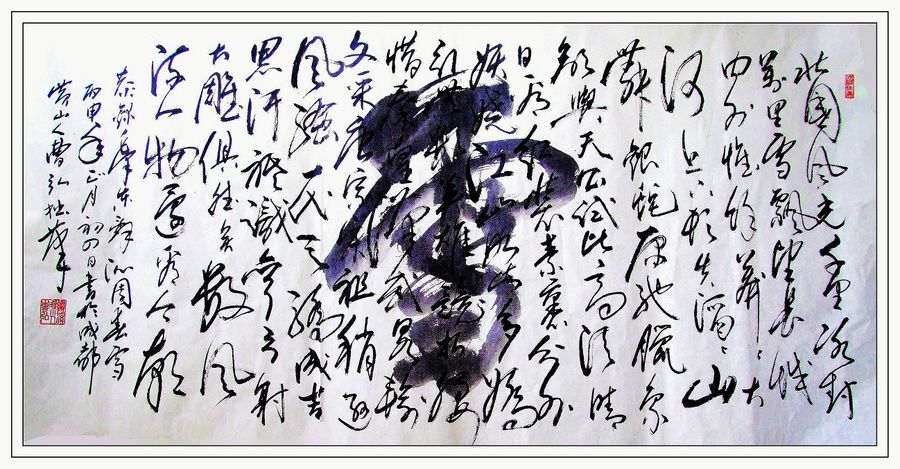 北國风光千里冰封
万里雪飘望長城
内外惟餘莽莽大
河上下顿失滔滔山
舞银蛇原驰臘象
欲與天公试比高须晴
日看红装素裹分外
妖娆江山如此多娇
引无数英雄競折腰
惜秦皇漢武略输
文采唐宗宋祖稍逊
风骚一代天骄成吉
思汗祗識弯弓射
大雕俱往矣数风
流人物还看今朝
恭录毛泽东词沁园春雪
丙申年正月初四日书於成都
黄山人曹弘